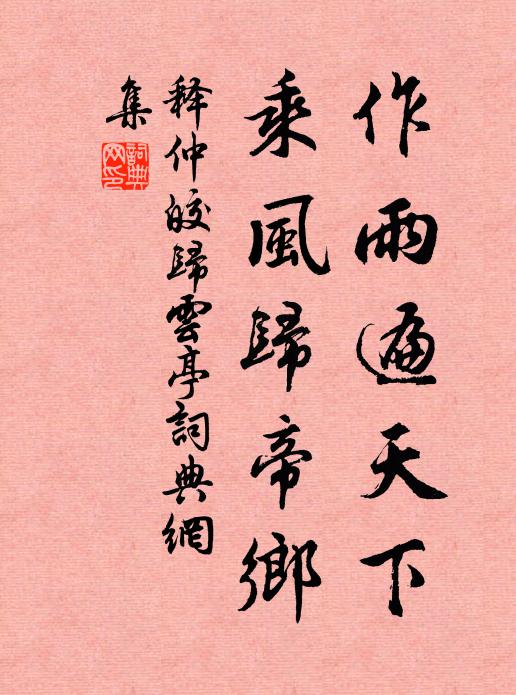 作雨遍天下
乘風歸帝鄉
释仲皎歸雲亭詞典網
集
詞典網印